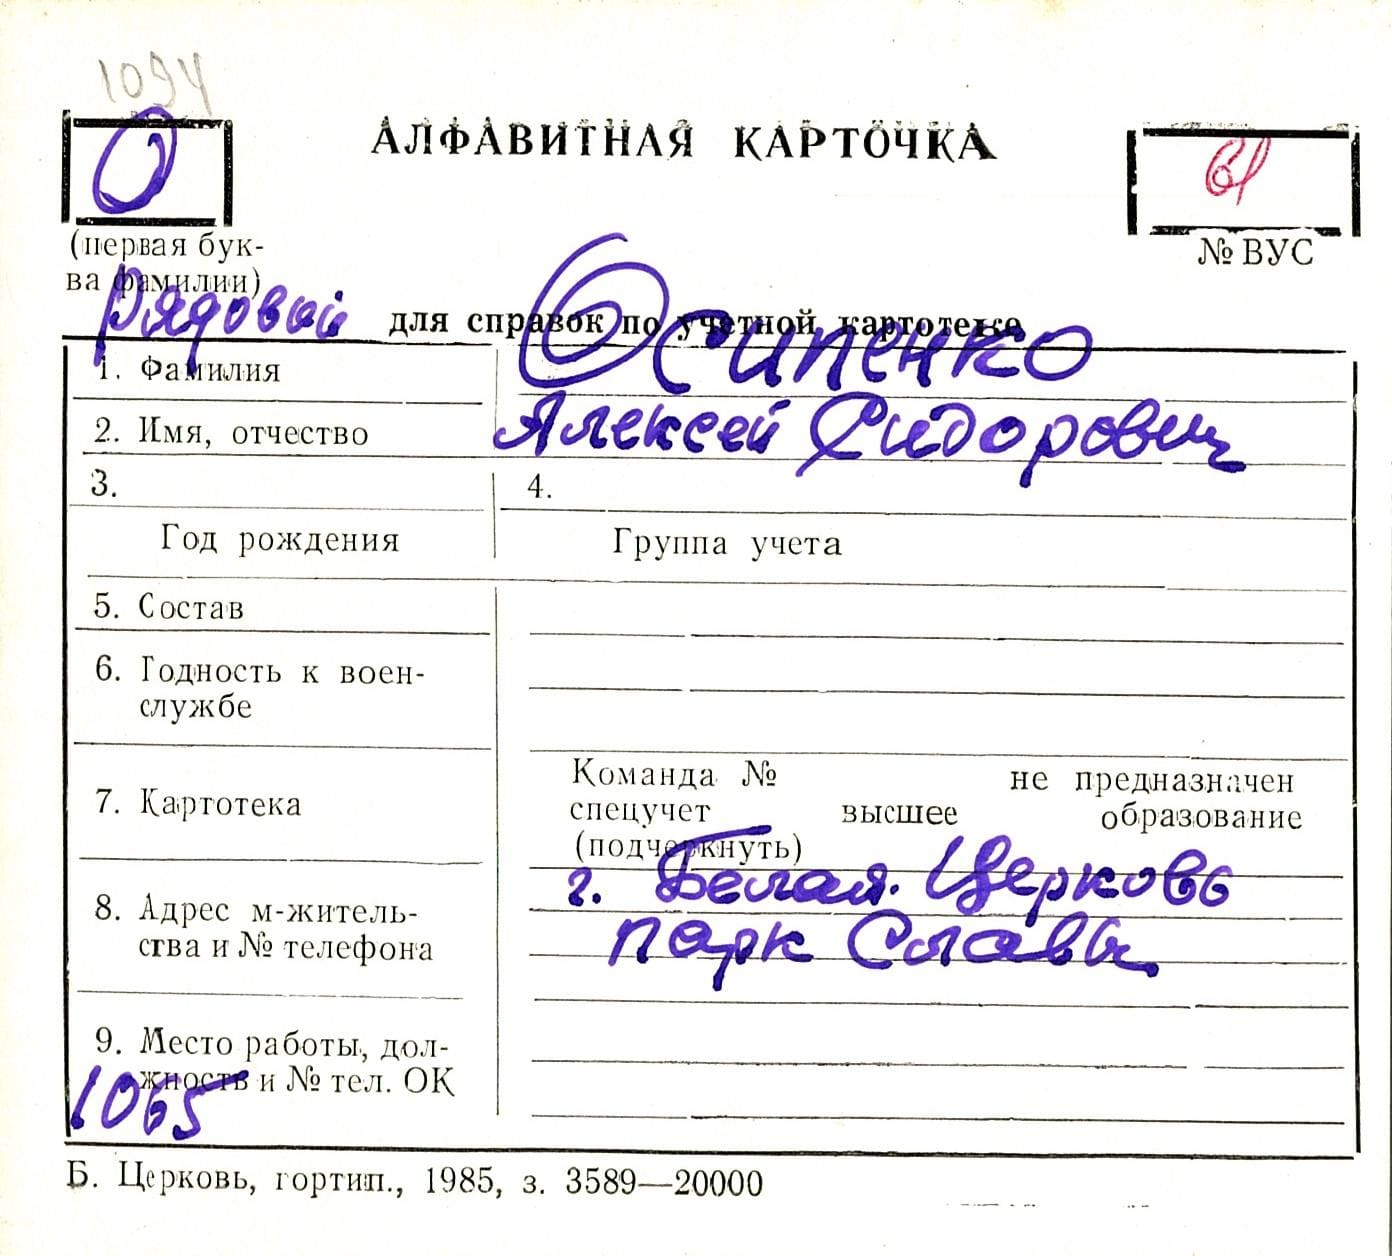 1094
О
АЛФАВИТНАЯ КАРТОЧКА
61
(первая бук-
ва фамилии)
№ ВУС
Рядовой
для справок по учетной картотеке
1. Фамилия Осипенко
2. Имя, отчество Алексей Сидорович
3. 4.
Год рождения Группа учета
5. Состав
6. Годность к воен-
службе
7. Картотека
Команда № не предназначен
спецучет высшее образование
(подчеркнуть)
8. Адрес м-житель-
ства и № телефона
г. Белая Церковь
парк Славы
9. Место работы, дол-
жность и № тел. ОК
1065
Б. Церковь, гортип., 1985, з. 3589—20000